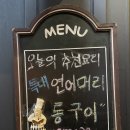 MENU
오늘의 추천요리
특대 연어머리
통구이"